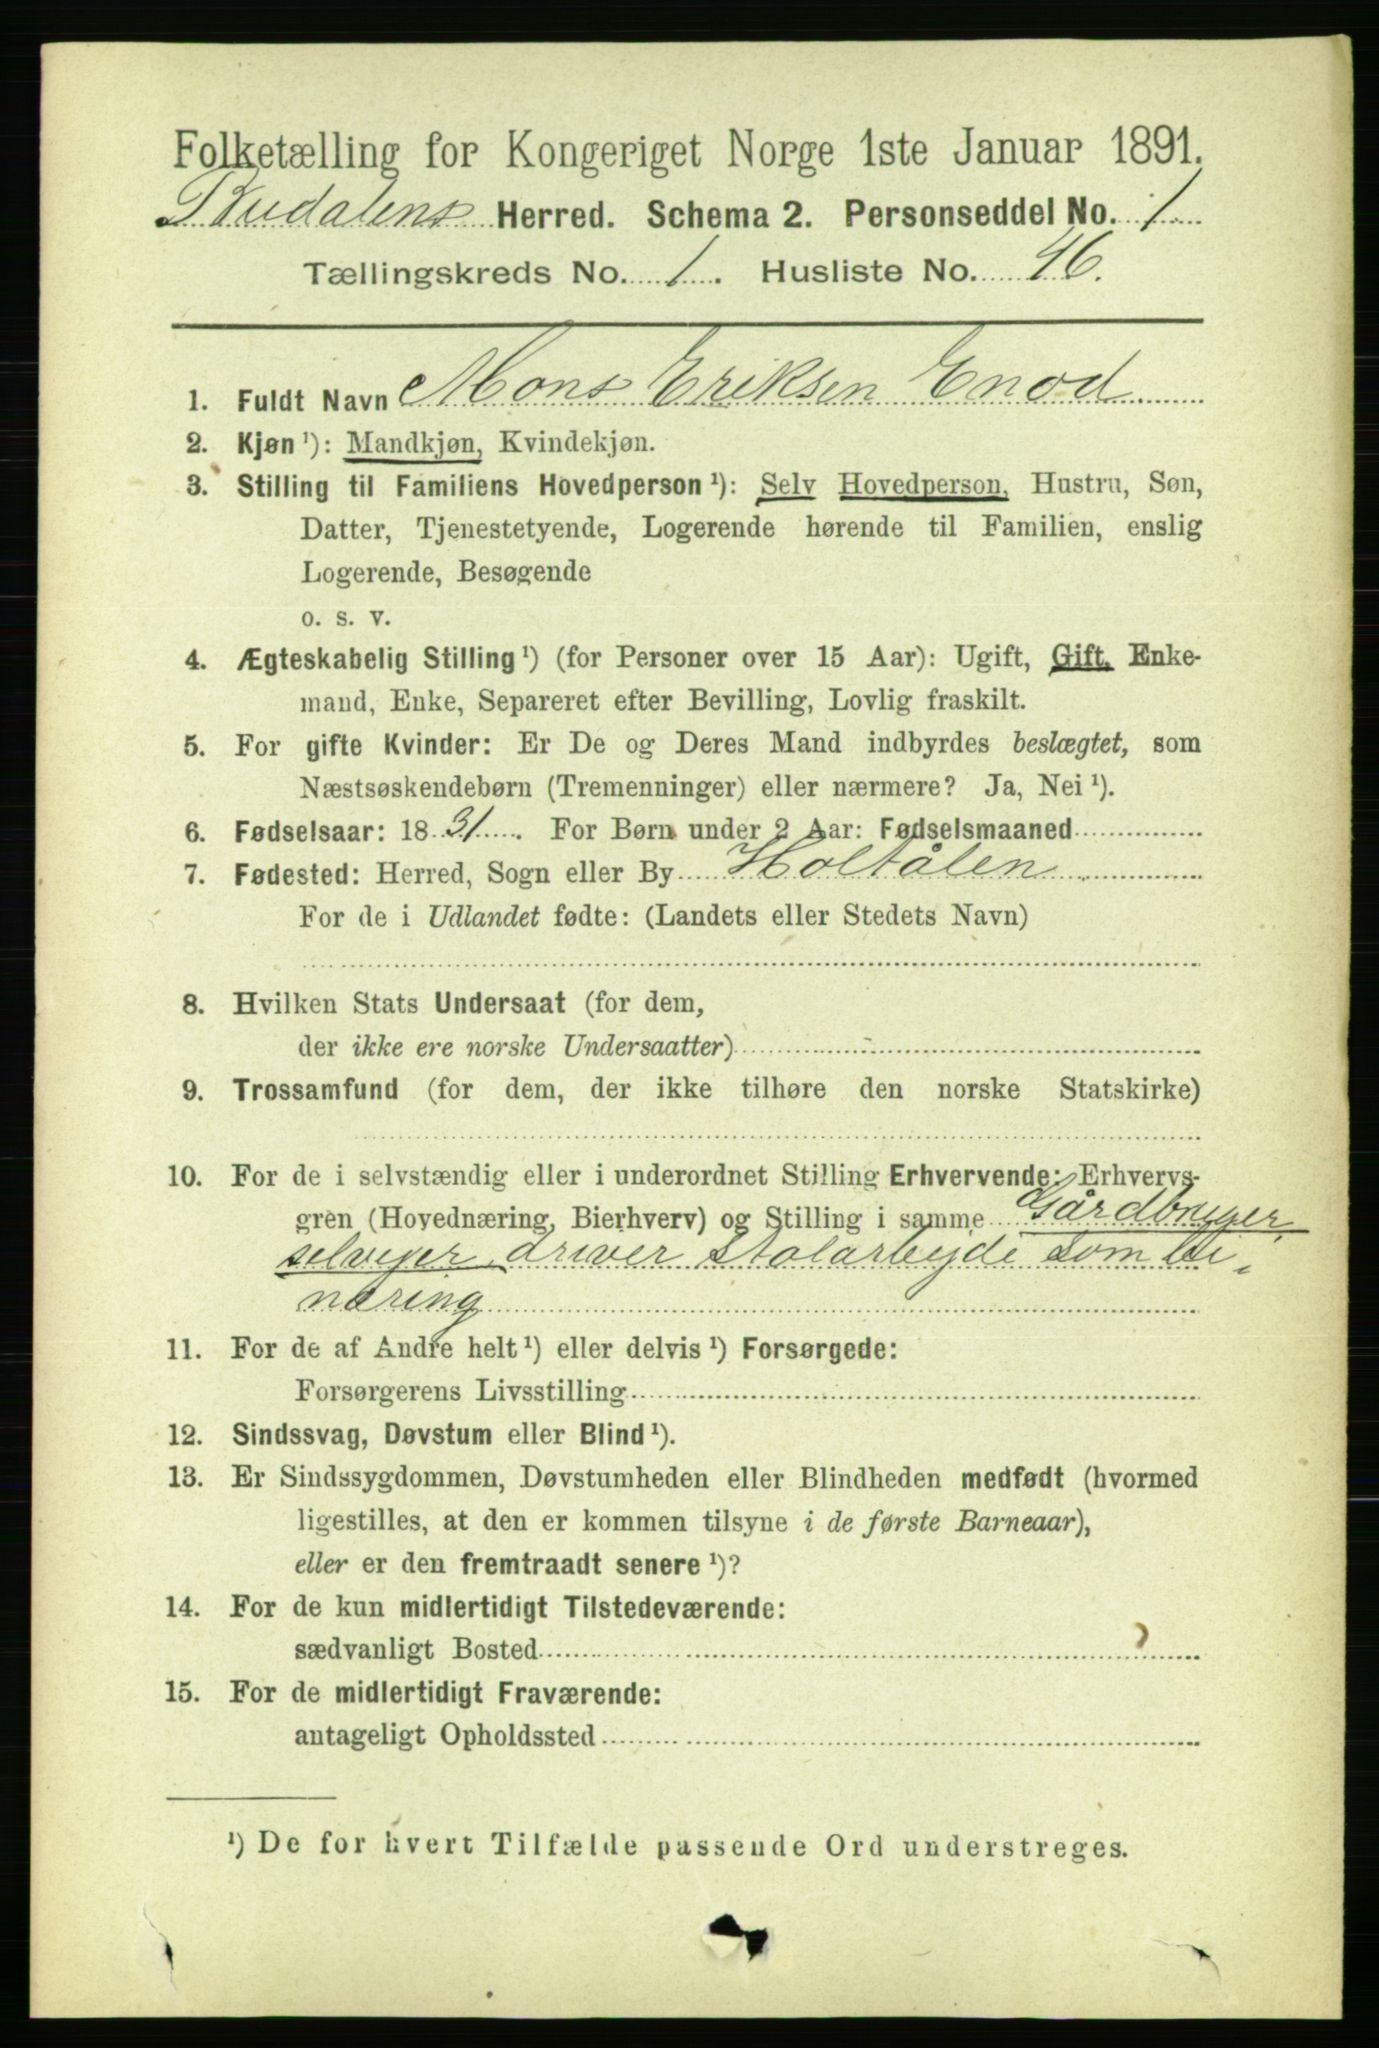 Folketælling for Kongeriget Norge 1ste Januar 1891.
Budalens Herred. Schema 2. Personseddel No. 1
Tællingskreds No. 1. Husliste No. 46.
1. Fuldt Navn Mons Eriksen Enod
2. Kjøn ¹): Mandkjøn, Kvindekjøn.
3. Stilling til Familiens Hovedperson ¹): Selv Hovedperson, Hustru, Søn,
Datter, Tjenestetyende, Logerende hørende til Familien, enslig
Logerende, Besøgende
o. s. v.
4. Ægteskabelig Stilling ¹) (for Personer over 15 Aar): Ugift, Gift, Enke-
mand, Enke, Separeret efter Bevilling, Lovlig fraskilt.
5. For gifte Kvinder: Er De og Deres Mand indbyrdes beslægtet, som
Næstsøskendebørn (Tremenninger) eller nærmere? Ja, Nei ¹).
6. Fødselsaar: 1831. For Børn under 2 Aar: Fødselsmaaned
7. Fødested: Herred, Sogn eller By Holtålen
For de i Udlandet fødte: (Landets eller Stedets Navn)
8. Hvilken Stats Undersaat (for dem,
der ikke ere norske Undersaatter)
9. Trossamfund (for dem, der ikke tilhøre den norske Statskirke)
10. For de i selvstændig eller i underordnet Stilling Erhvervende: Erhvervs-
gren (Hovednæring, Bierhverv) og Stilling i samme Gårdbruger,
selvejer, driver stolarbejde som bi-
næring
11. For de af Andre helt ¹) eller delvis ¹) Forsørgede:
Forsørgerens Livsstilling
12. Sindssvag, Døvstum eller Blind ¹).
13. Er Sindssygdommen, Døvstumheden eller Blindheden medfødt (hvormed
ligestilles, at den er kommen tilsyne i de første Barneaar),
eller er den fremtraadt senere ¹)?
14. For de kun midlertidigt Tilstedeværende:
sædvanligt Bosted
15. For de midlertidigt Fraværende:
antageligt Opholdssted
¹) De for hvert Tilfælde passende Ord understreges.